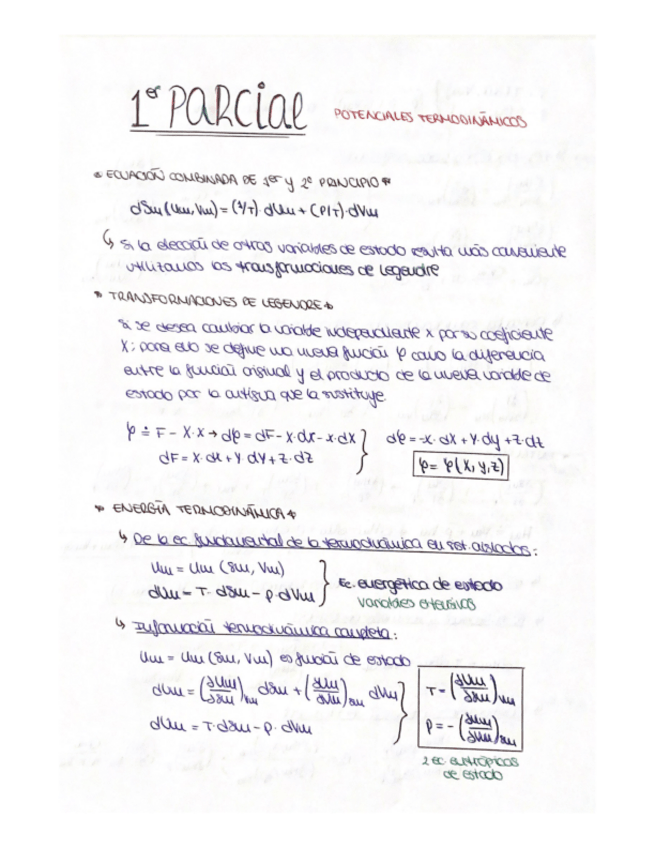 1er PARCIAL POTENCIALES TERMODINÁMICOS
* ECUACIÓN COMBINADA DE 1er y 2º PRINCIPIO *
dSm (Um, Vm) = (1/T)· dUm + (P/T)·dVm
↳ Si la elección de otras variables de estado resulta más conveniente
utilizamos las transformaciones de Legendre
* TRANSFORMACIONES DE LEGENDRE *
Si se desea cambiar la variable independiente x por su coeficiente
X; para ello se define una nueva función φ como la diferencia
entre la función original y el producto de la nueva variable de
estado por la antigua que la sustituye.
φ ≐ F - X·x → dφ = dF - X·dx - x·dX
dF = X·dx + Y·dy + Z·dz
dφ = -x·dX + Y·dy + Z·dz
φ = φ(X, y, z)
* ENERGÍA TERMODINÁMICA *
↳ De la ec. fundamental de la termodinámica en sist. aislados:
Um = Um (Sm, Vm)
dUm = T· dSm - p·dVm
Ec. energética de estado
variables extensivas
↳ Información termodinámica completa:
Um = Um (Sm, Vm) es función de estado
dUm = (∂Um/∂Sm)Vm dSm + (∂Um/∂Vm)Sm dVm
dUm = T·dSm - p· dVm
T = (∂Um/∂Sm)Vm
p = - (∂Um/∂Vm)Sm
2 ec. entrópicas
de estado